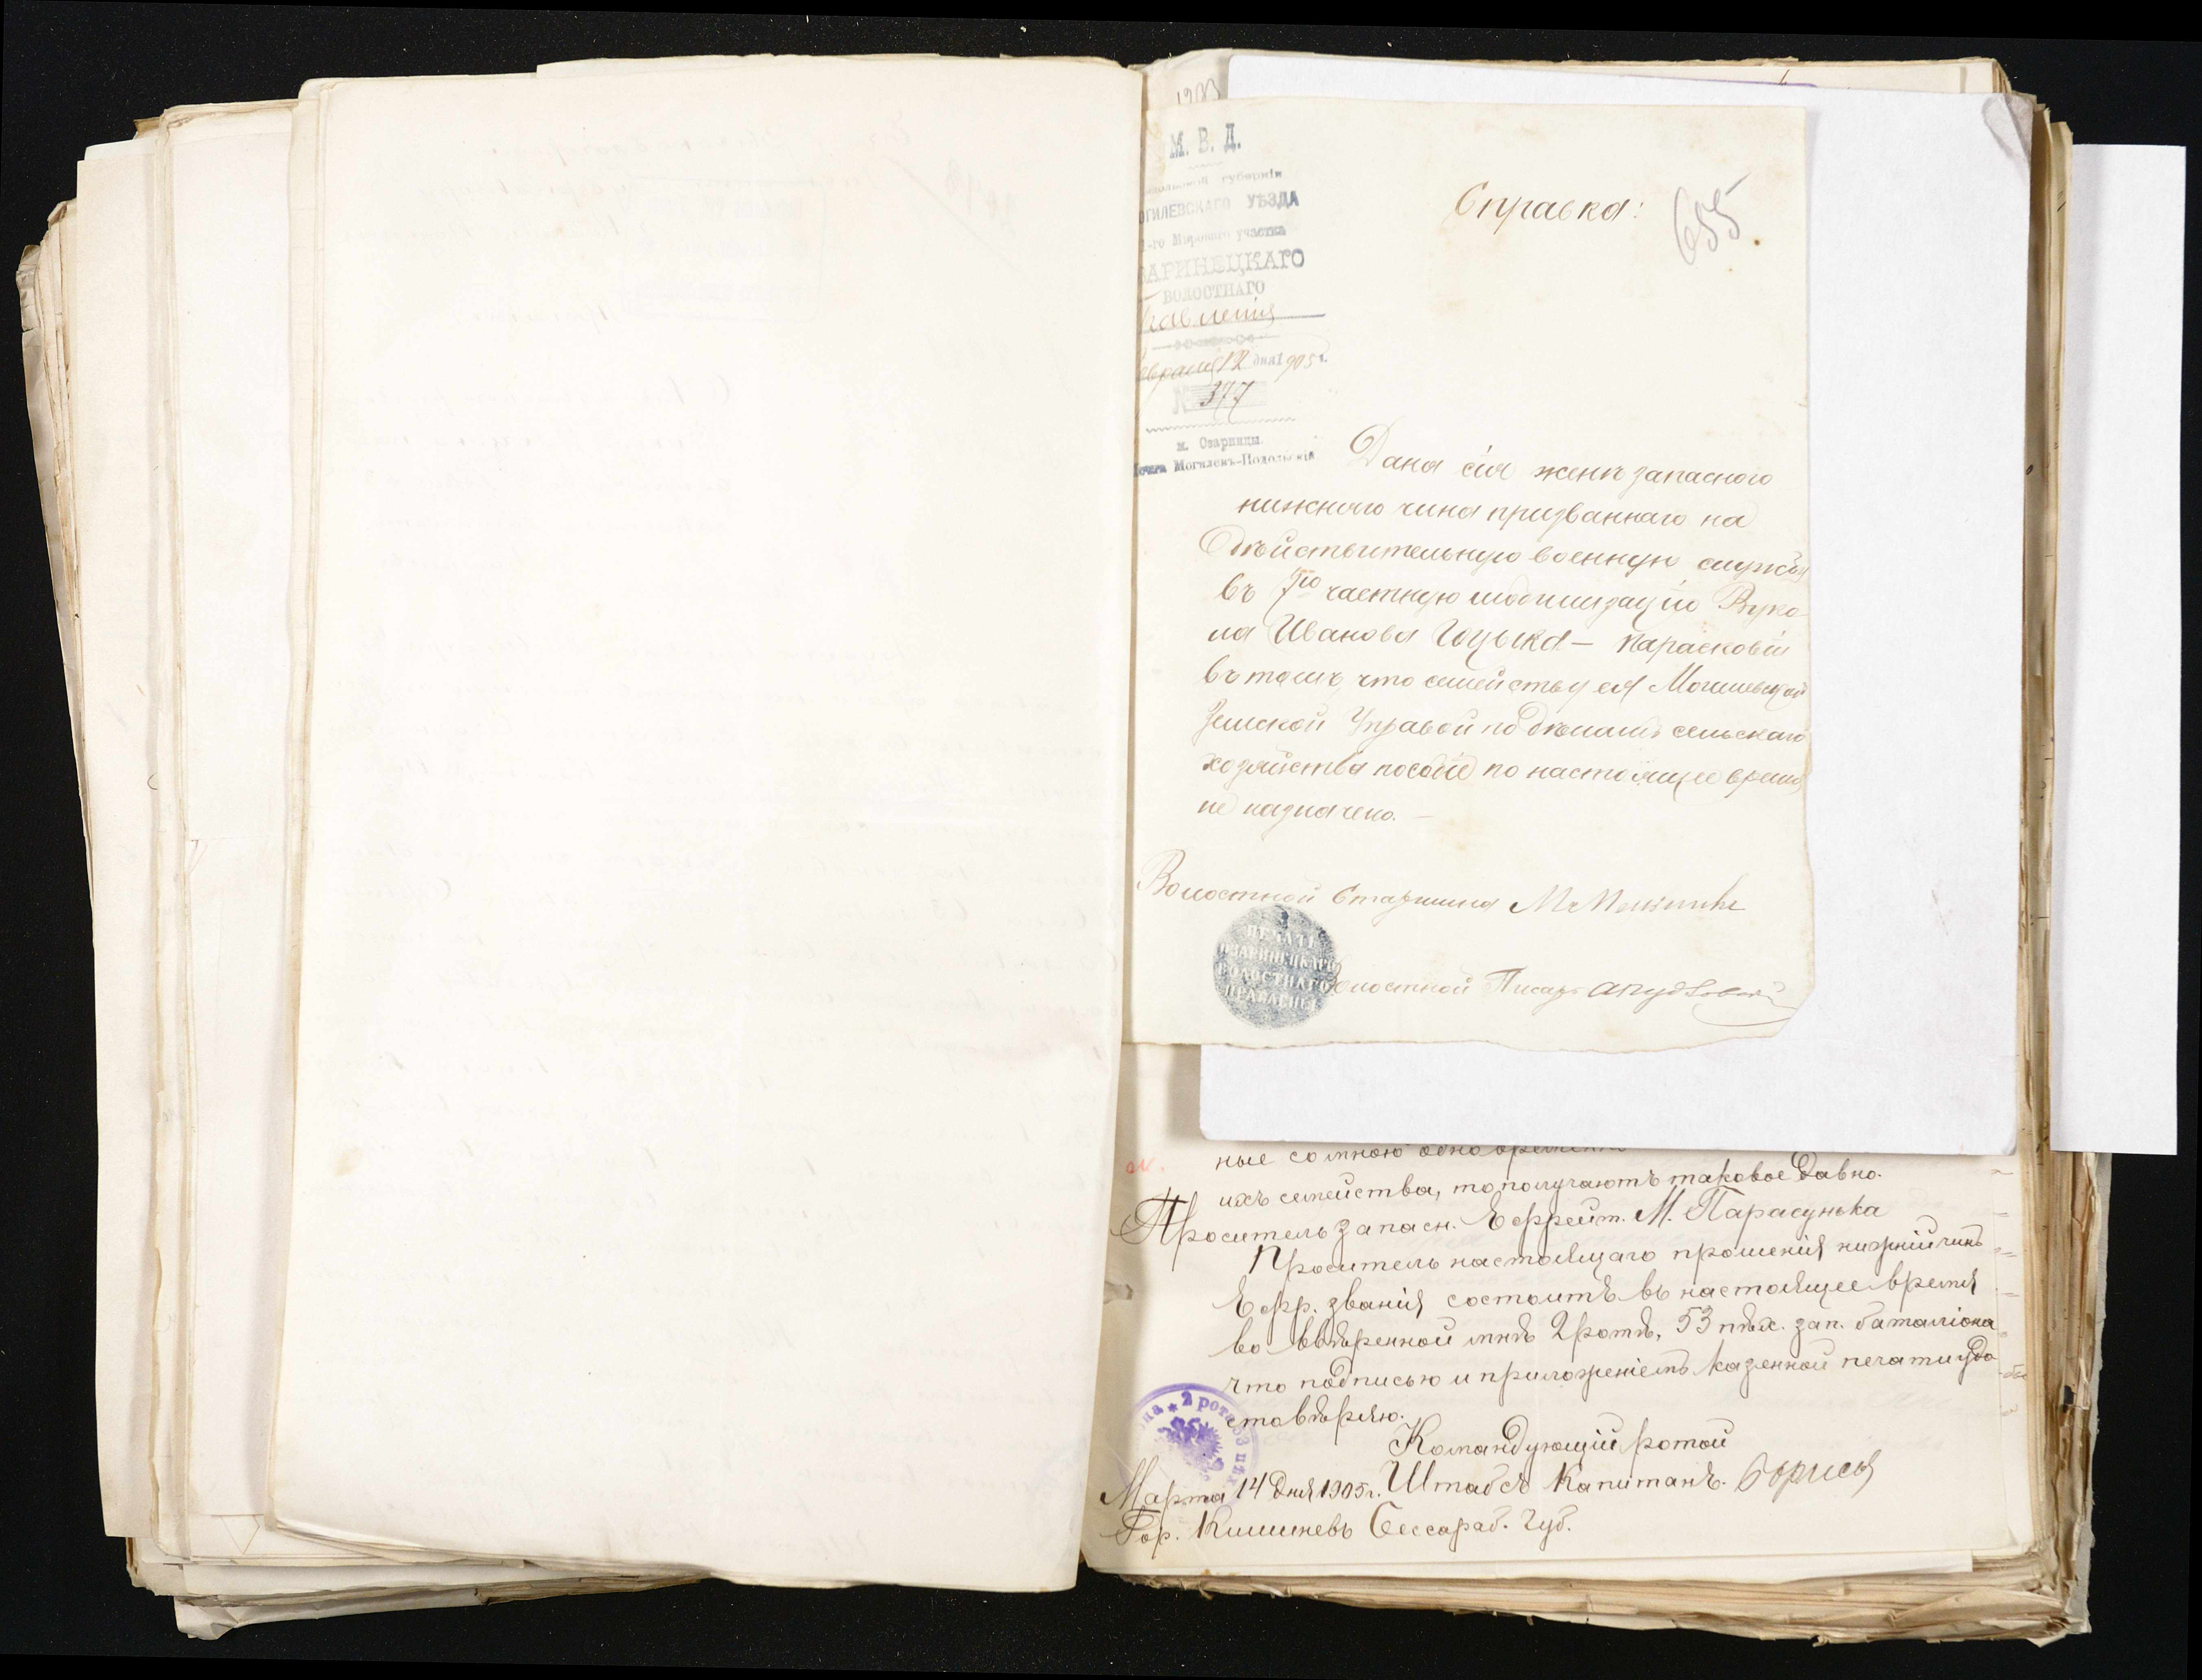 М. В. Д.
губерніи
ОГИЛЕВСКАГО УѢЗДА
1-го Мирового участка
ЗАРИНЕЦКАГО
ВОЛОСТНАГО
Правленія
евраля 12 дня 1905 г.
№ 377
м. Озаринцы.
Почта Могилевъ-Подольскій
Справка:
655
Дана сія женѣ запасного
нижняго чина призваннаго на
дѣйствительную военную службу
въ 7ю частную мобилизацію Вуко-
ла Иванова — Парасковіи
въ томъ, что семейству ея Могилевской
Земской Управой по дѣламъ сельскаго
хозяйства пособіе по настоящее время
не назначено. —
Волостной Старшина М
ПЕЧАТЬ
ОЗАРИНЕЦКАГО
ВОЛОСТНАГО
ПРАВЛЕНІЯ
Волостной Писарь
ные со мною одновременно
ихъ семейства, то получаютъ таковое давно.
Проситель запасн. Ефрейт. М. Парасунька
Проситель настоящаго прошенія нижній чинъ
Ефр. званія состоитъ въ настоящее время
во ввѣренной мнѣ 2 ротѣ, 53 пѣх. зап. баталіона
что подписью и приложеніемъ казенной печати удо-
стовѣряю.
2 рота 53 пѣх
Командующій ротой
Марта 14 дня 1905 г. Штабсъ Капитанъ.
Гор. Кишиневъ Бессараб. Губ.